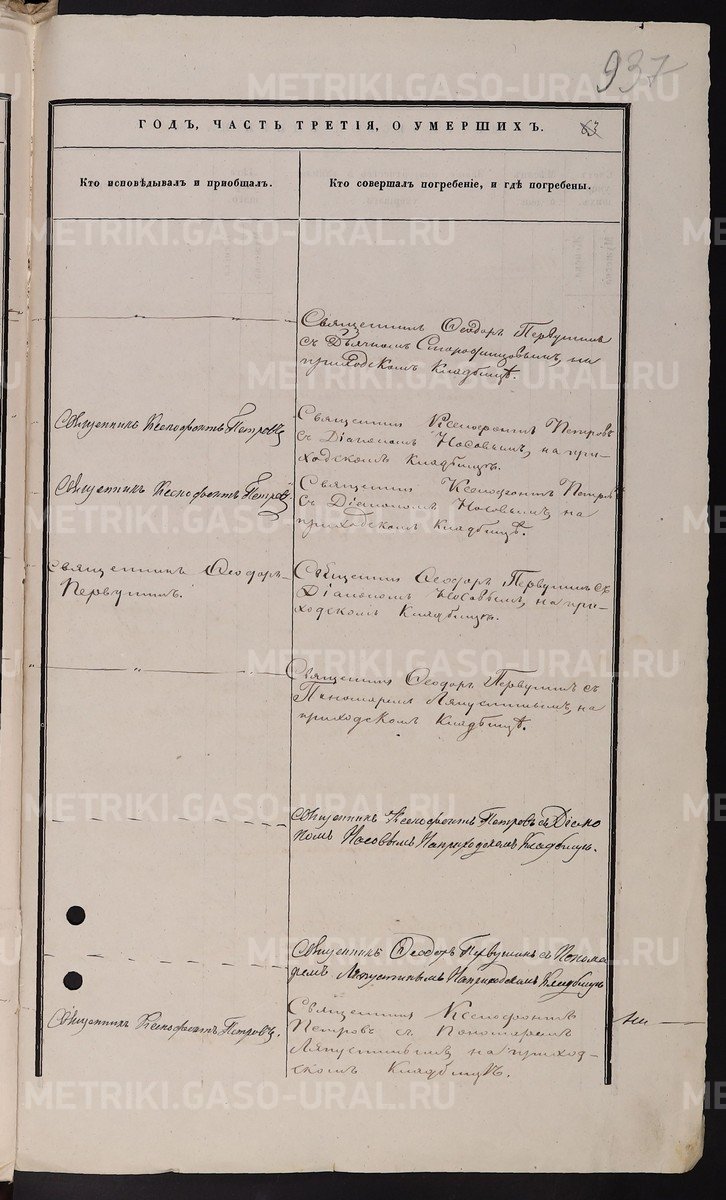 937
ГОДЪ, ЧАСТЬ ТРЕТІЯ, О УМЕРШИХЪ.
63
Кто исповѣдывалъ и пріобщалъ.
Кто совершалъ погребеніе, и гдѣ погребены.
Священникъ Ѳеодоръ Первушинъ
съ Дьячкомъ на
приходскомъ Кладбищѣ.
Священникъ Ксенофонтъ Петровъ
Священник Ксенофонтъ Петровъ
съ Діакономъ Носовымъ, на при-
ходскомъ кладбищѣ.
Священникъ Ксенофонтъ Петровъ
Священник Ксенофонтъ Петровъ
съ Діакономъ Носовымъ, на
приходскомъ кладбищѣ.
Священникъ Ѳеодоръ
Первушинъ.
Священник Ѳеодоръ Первушинъ съ
Діакономъ Носовымъ, на при-
ходскомъ Кладбищѣ.
Священник Ѳеодоръ Первушинъ съ
Пономаремъ Ляпустинымъ, на
приходскомъ Кладбищѣ.
Священникъ Ксенофонтъ Петровъ съ Діако
номъ Носовымъ На приходскомъ Кладбищѣ.
Священникъ Ѳеодоръ Первушинъ съ Понома
ремъ Ляпустинымъ На приходскомъ Кладбищѣ
Священникъ Ксенофонтъ Петровъ.
Священник Ксенофонтъ
Петровъ съ Пономаремъ
Ляпустинымъ, на приход-
скомъ Кладбищѣ.
METRIKI.GASO-URAL.RU